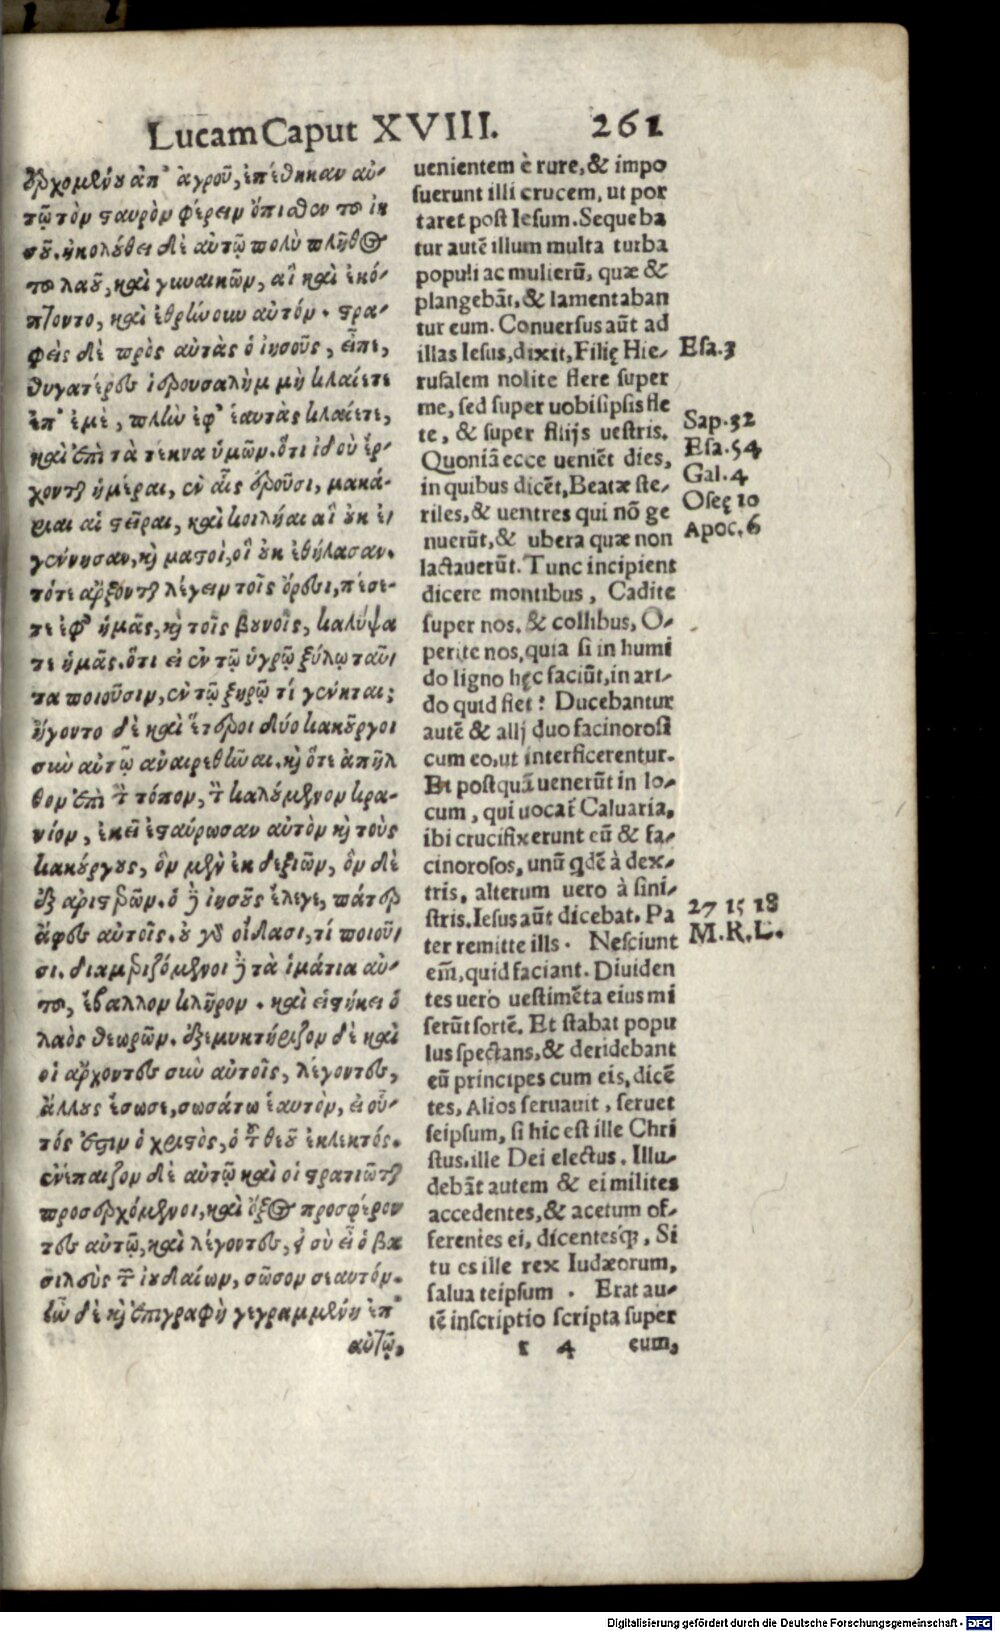 Lucam Caput XVIII. 261
ἐρχομένου ἀπ' ἀγροῦ, ἐπέθηκαν αὐ-
τῷ τὸν σταυρὸν φέρειν ὄπισθεν το ἰη
σοῦ. ἠκολούθει δὲ αὐτῷ πολὺ πλῆθος
το λαοῦ, καὶ γυναικῶν, αἳ καὶ ἐκό-
πτοντο, καὶ ἐθρήνουν αὐτόν. στρα-
φεὶς δὲ πρὸς αὐτὰς ὁ ἰησοῦς, εἶπε,
θυγατέρες ἱερουσαλὴμ μὴ κλαίετε
ἐπ' ἐμὲ, πλὴν ἐφ' ἑαυτὰς κλαίετε,
καὶ ἐπὶ τὰ τέκνα ὑμῶν. ὅτι ἰδοὺ ἔρ-
χονται ἡμέραι, ἐν αἷς ἐροῦσι, μακά-
ριαι αἱ στεῖραι, καὶ κοιλίαι αἳ οὐκ ἐ-
γέννησαν, καὶ μαστοὶ, οἳ οὐκ ἐθήλασαν.
τότε ἄρξονται λέγειν τοῖς ὄρεσι, πέσε-
τε ἐφ' ἡμᾶς, καὶ τοῖς βουνοῖς, καλύψα
τε ἡμᾶς. ὅτι εἰ ἐν τῷ ὑγρῷ ξύλῳ ταῦ-
τα ποιοῦσιν, ἐν τῷ ξηρῷ τί γένηται;
ἤγοντο δὲ καὶ ἕτεροι δύο κακοῦργοι
σὺν αὐτῷ ἀναιρεθῆναι. καὶ ὅτε ἀπῆλ
θον ἐπὶ τὸν τόπον, τὸν καλούμενον κρα-
νίον, ἐκεῖ ἐσταύρωσαν αὐτὸν καὶ τοὺς
κακούργους, ὃν μὲν ἐκ δεξιῶν, ὃν δὲ
ἐξ ἀριστερῶν. ὁ δὲ ἰησοῦς ἔλεγε, πάτερ
ἄφες αὐτοῖς. οὐ γὰρ οἴδασι, τί ποιοῦ-
σι. διαμεριζόμενοι δὲ τὰ ἱμάτια αὐ-
το, ἔβαλλον κλῆρον. καὶ εἱστήκει ὁ
λαὸς θεωρῶν. ἐξεμυκτήριζον δὲ καὶ
οἱ ἄρχοντες σὺν αὐτοῖς, λέγοντες,
ἄλλους ἔσωσε, σωσάτω ἑαυτὸν, εἰ οὗ-
τός ἐστιν ὁ χριστὸς, ὁ τοῦ θεοῦ ἐκλεκτός.
ἐνέπαιζον δὲ αὐτῷ καὶ οἱ στρατιῶται
προσερχόμενοι, καὶ ὄξος προσφέρον
τες αὐτῷ, καὶ λέγοντες, εἰ σὺ εἶ ὁ βα
σιλεὺς τῶν ἰουδαίων, σῶσον σεαυτόν.
ἦν δὲ καὶ ἐπιγραφὴ γεγραμμένη ἐπ'
αὐτῷ,
uenientem è rure, & impo
suerunt illi crucem, ut por
taret post Iesum. Sequeba
tur autē illum multa turba
populi ac mulierū, quæ &
plangebāt, & lamentaban
tur eum. Conuersus aūt ad
illas Iesus, dixit, Filię Hie-
rusalem nolite flere super
me, sed super uobisipsis fle
te, & super filijs uestris.
Quoniā ecce ueniēt dies,
in quibus dicēt, Beatæ ste-
riles, & uentres qui nō ge
nuerūt, & ubera quæ non
lactauerūt. Tunc incipient
dicere montibus, Cadite
super nos. & collibus, O-
perite nos, quia si in humi
do ligno hęc faciūt, in ari-
do quid fiet? Ducebantur
autē & alij duo facinorosi
cum eo, ut interficerentur.
Et postquā uenerūt in lo-
cum, qui uocat̄ Caluaria,
ibi crucifixerunt eū & fa-
cinorosos, unū qdē à dex-
tris, alterum uero à sini-
stris. Iesus aūt dicebat. Pa
ter remitte ills. Nesciunt
em̄, quid faciant. Diuiden
tes uero uestimēta eius mi
serūt sortē. Et stabat popu
lus spectans, & deridebant
eū principes cum eis, dicē
tes, Alios seruauit, seruet
seipsum, si hic est ille Chri
stus. ille Dei electus. Illu-
debāt autem & ei milites
accedentes, & acetum of-
ferentes ei, dicentesq́;, Si
tu es ille rex Iudæorum,
salua teipsum. Erat au-
tē inscriptio scripta super
r 4 eum,
Esa. 3
Sap. 32
Esa. 54
Gal. 4
Oseę 10
Apoc. 6
27 15 18
M. R. L.
Digitalisierung gefördert durch die Deutsche Forschungsgemeinschaft - DFG